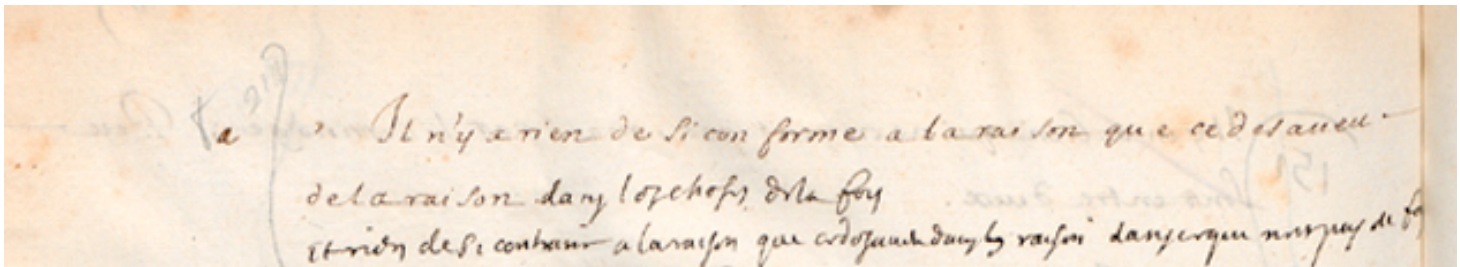 a Il n'y a rien de si conforme a la raison que ce desaueu
de la raison dans les choses de la foy
Et rien de si contraire a la raison que ce desaueu de la raison dans ce qui n'est pas de foy